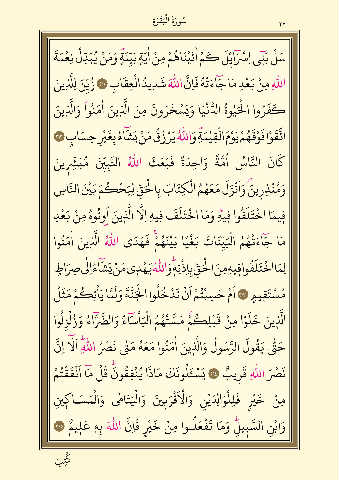 سُورَةُ الْبَقَرَةِ
٣٢
سَلْ بَنِي إِسْرَائِلَ كَمْ اٰتَيْنَاهُمْ مِنْ اٰيَةٍ بَيِّنَةٍ وَمَنْ يُبَدِّلْ نِعْمَةَ
اللّٰهِ مِنْ بَعْدِ مَا جَاءَتْهُ فَاِنَّ اللّٰهَ شَدِيدُ الْعِقَابِ ﴿٢١١﴾ زُيِّنَ لِلَّذِينَ
كَفَرُوا الْحَيٰوةُ الدُّنْيَا وَيَسْخَرُونَ مِنَ الَّذِينَ اٰمَنُوا وَالَّذِينَ
اتَّقَوْا فَوْقَهُمْ يَوْمَ الْقِيٰمَةِ وَاللّٰهُ يَرْزُقُ مَنْ يَشَاءُ بِغَيْرِ حِسَابٍ ﴿٢١٢﴾
كَانَ النَّاسُ اُمَّةً وَاحِدَةً فَبَعَثَ اللّٰهُ النَّبِيِّنَ مُبَشِّرِينَ
وَمُنْذِرِينَ وَاَنْزَلَ مَعَهُمُ الْكِتَابَ بِالْحَقِّ لِيَحْكُمَ بَيْنَ النَّاسِ
فِيمَا اخْتَلَفُوا فِيهِ وَمَا اخْتَلَفَ فِيهِ اِلَّا الَّذِينَ اُوتُوهُ مِنْ بَعْدِ
مَا جَاءَتْهُمُ الْبَيِّنَاتُ بَغْيًا بَيْنَهُمْ فَهَدَى اللّٰهُ الَّذِينَ اٰمَنُوا
لِمَا اخْتَلَفُوا فِيهِ مِنَ الْحَقِّ بِاِذْنِهِ وَاللّٰهُ يَهْدِي مَنْ يَشَاءُ اِلٰى صِرَاطٍ
مُسْتَقِيمٍ ﴿٢١٣﴾ اَمْ حَسِبْتُمْ اَنْ تَدْخُلُوا الْجَنَّةَ وَلَمَّا يَأْتِكُمْ مَثَلُ
الَّذِينَ خَلَوْا مِنْ قَبْلِكُمْ مَسَّتْهُمُ الْبَأْسَاءُ وَالضَّرَّاءُ وَزُلْزِلُوا
حَتّٰى يَقُولَ الرَّسُولُ وَالَّذِينَ اٰمَنُوا مَعَهُ مَتٰى نَصْرُ اللّٰهِ اَلَا اِنَّ
نَصْرَ اللّٰهِ قَرِيبٌ ﴿٢١٤﴾ يَسْـَٔلُونَكَ مَاذَا يُنْفِقُونَ قُلْ مَا اَنْفَقْتُمْ
مِنْ خَيْرٍ فَلِلْوَالِدَيْنِ وَالْاَقْرَبِينَ وَالْيَتَامٰى وَالْمَسَاكِينِ
وَابْنِ السَّبِيلِ وَمَا تَفْعَلُوا مِنْ خَيْرٍ فَاِنَّ اللّٰهَ بِهِ عَلِيمٌ ﴿٢١٥﴾
كُتِبَ